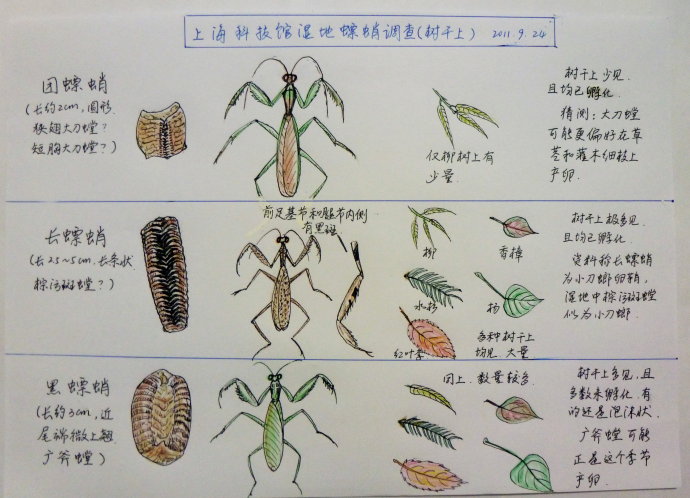 上海科技馆湿地螵蛸调查(树干上) 2011.9.24
团螵蛸
(长约2cm,圆形.
狭翅大刀螳?
短胸大刀螳?)
仅柳树上有
少量.
树干上少见.
且均已孵化.
猜测:大刀螳
可能更偏好在草
茎和灌木细枝上
产卵.
长螵蛸
(长2.5~5cm,长条状.
棕污斑螳?)
前足基节和腿节内侧
有黑斑
柳
香樟
水杉
杨
红叶李
多种树干上
均见.大量
树干上极多见.
且均已孵化.
资料称长螵蛸
为小刀螂卵鞘,
湿地中棕污斑螳
似为小刀螂.
黑螵蛸
(长约3cm,近
尾端微上翘.
广斧螳)
同上.数量较多.
树干上多见,且
多数未孵化.有
的还是泡沫状.
广斧螳可能
正是这个季节
产卵.